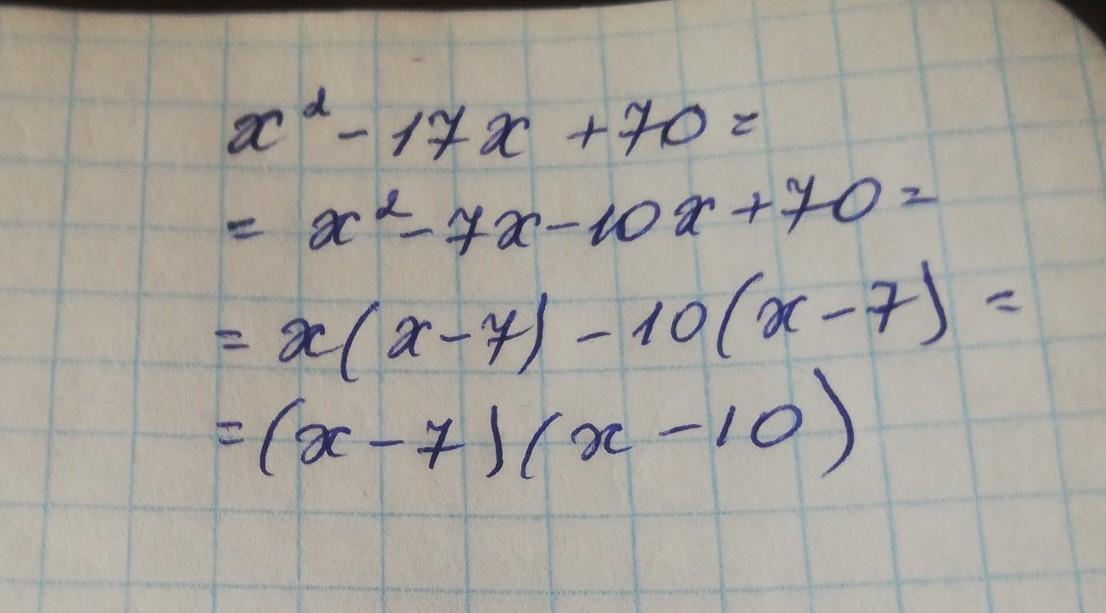 x² - 17x + 70 =
= x² - 7x - 10x + 70 =
= x(x - 7) - 10(x - 7) =
= (x - 7)(x - 10)